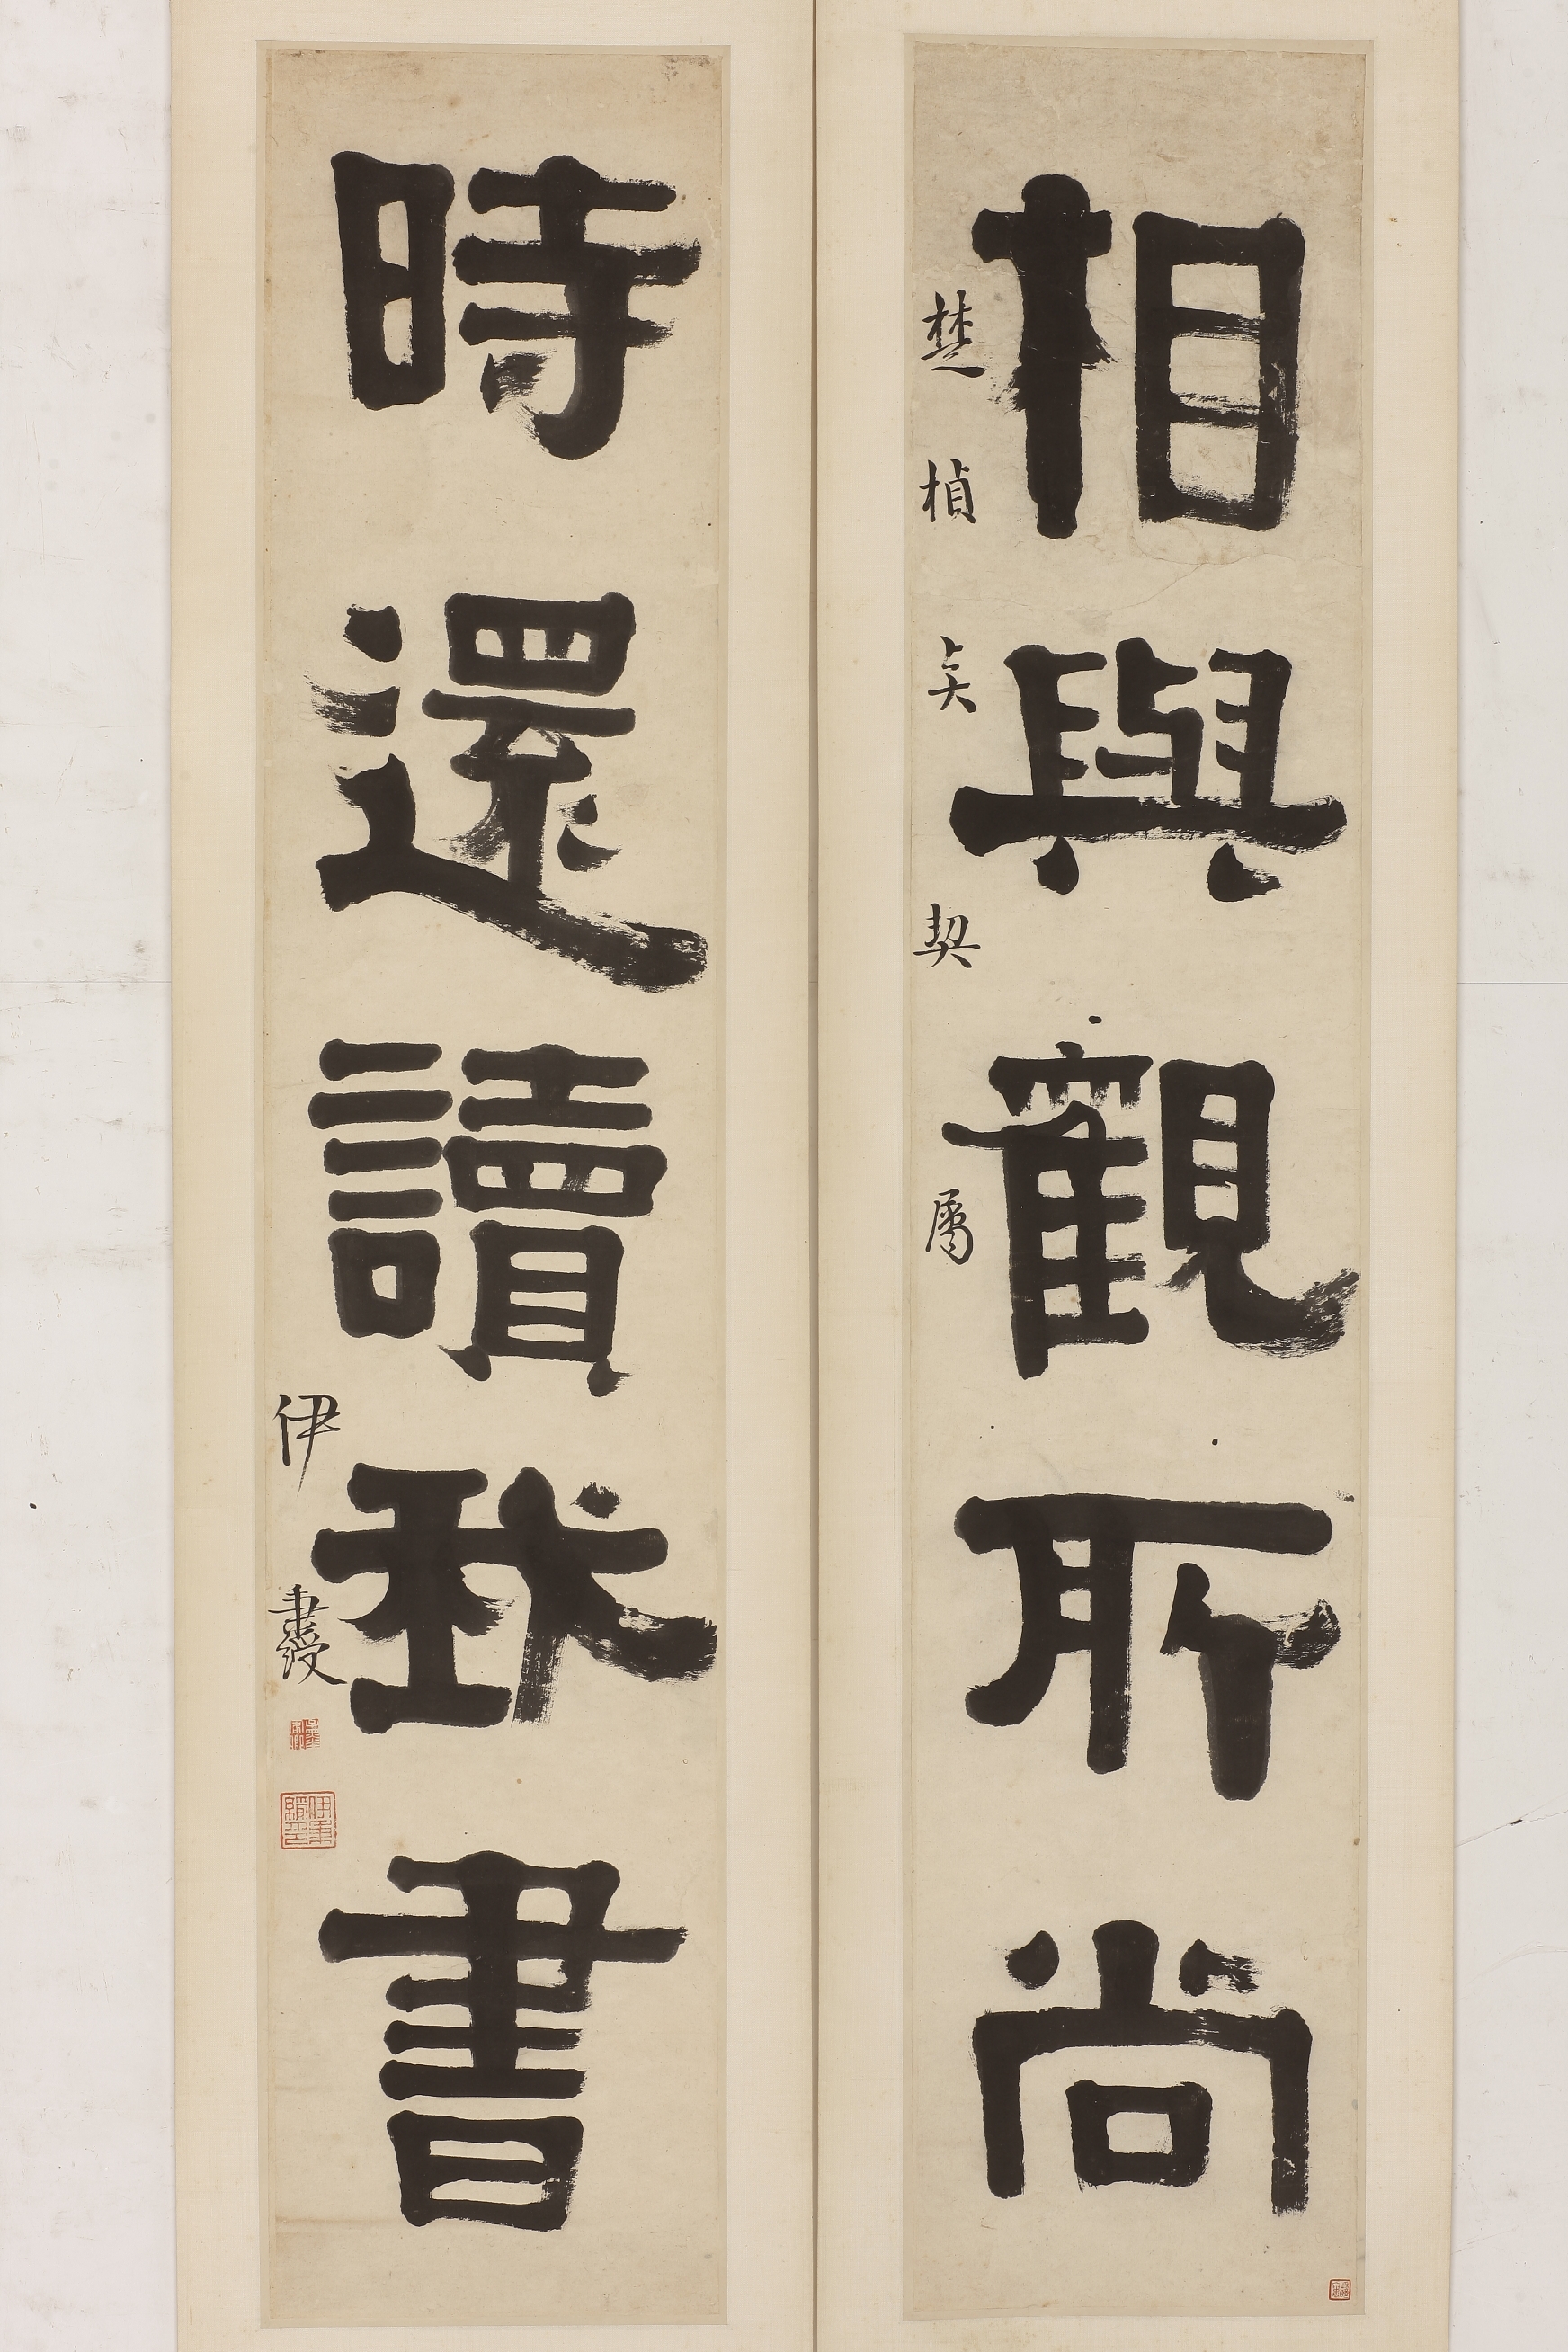 相與觀所尚
楚楨 契屬
時還讀我書
伊秉綬
伊秉綬印